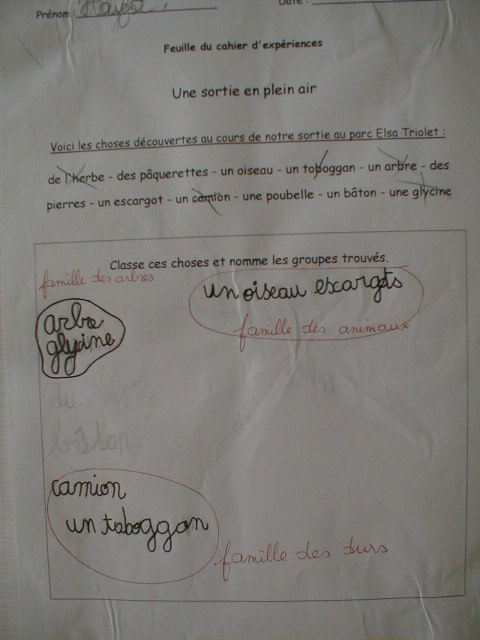 Prénom :
Date :
Feuille du cahier d'expériences
Une sortie en plein air
Voici les choses découvertes au cours de notre sortie au parc Elsa Triolet :
de l'herbe - des pâquerettes - un oiseau - un toboggan - un arbre - des
pierres - un escargot - un camion - une poubelle - un bâton - une glycine
Classe ces choses et nomme les groupes trouvés.
famille des arbres
un oiseau escargots
famille des animaux
arbre
glycine
du
bâton
camion
un taboggan
famille des durs